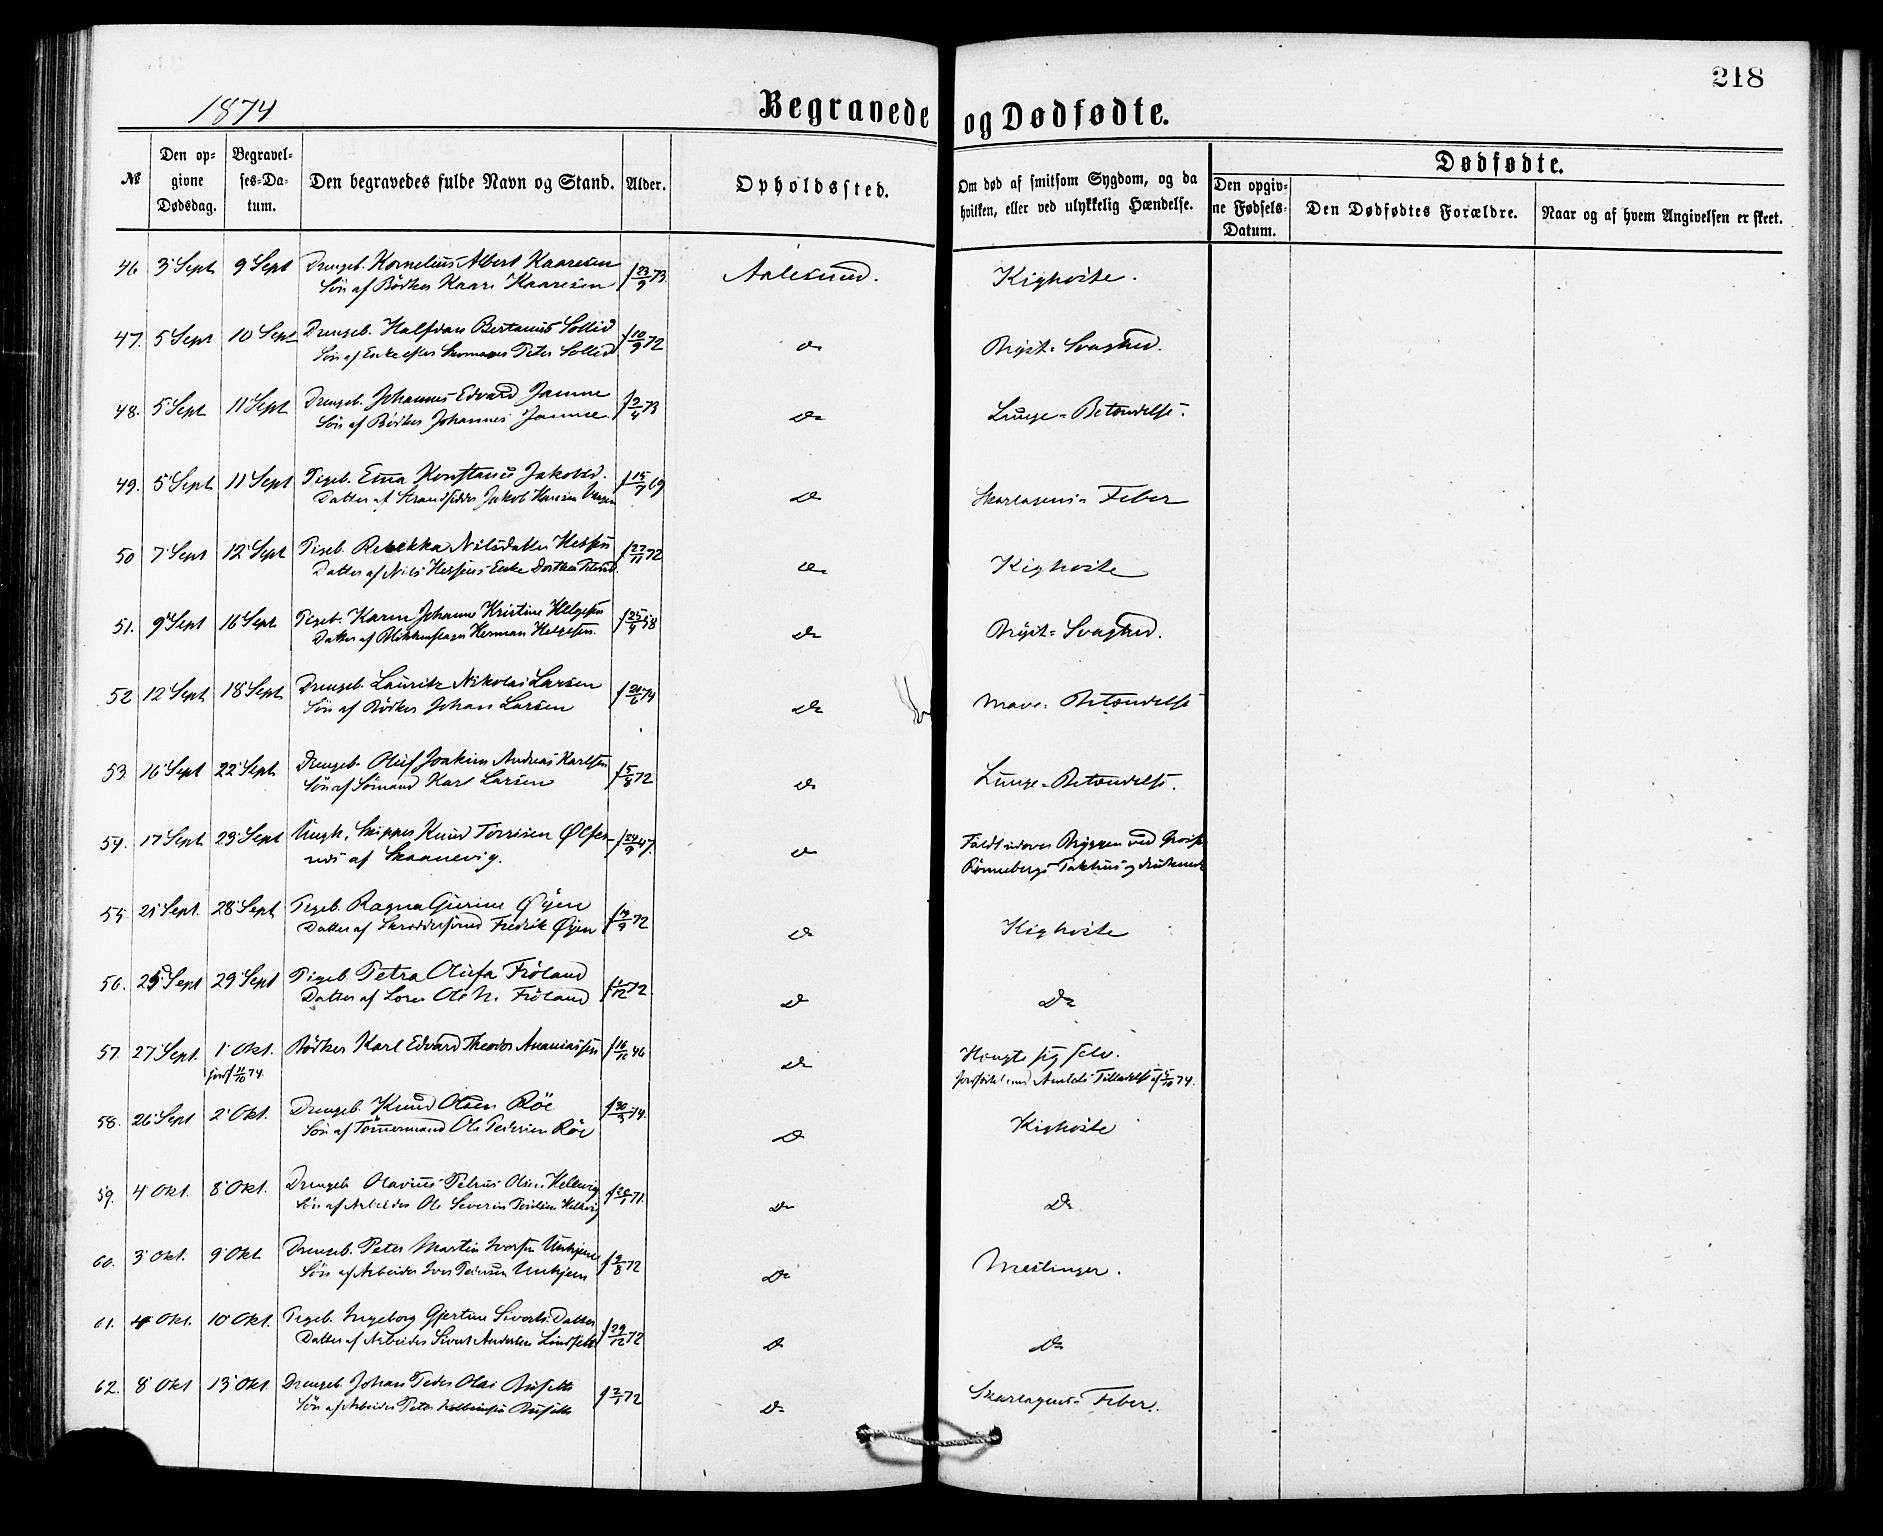 218
1874
Begravede og Dødfødte.
№
Den op-
givne
Dødsdag.
Begravel-
ses-Da-
tum.
Den begravedes fulde Navn og Stand.
Alder.
Opholdssted.
Om død af smitsom Sygdom, og da
hvilken, eller ved ulykkelig Hændelse.
Dødfødte.
Den opgiv-
ne Fødsels-
Datum.
Den Dødfødtes Forældre.
Naar og af hvem Angivelsen er skeet.
46 3 Sept 9 Sept Drengeb. Kornelius Albert Kaaresen f 23/9 73 Aalesund. Kighoste.
Søn af Bødker Kaare Kaaresen
47. 5 Sept 10 Sept Drengeb. Halfdan Bertanus Sollid f 10/9 72 do Bryst-Svaghed.
Søn af Enke efter Peter Sollid
48. 5 Sept 11 Sept Drengeb. Johannes Edvard Jamne f 3/4 73 Do Lunge-Betændelse.
Søn af Bødker Johannes Jamne
49. 5 Sept 11 Sept Pigeb. Ema Konstanse Jakobsd. f 15/7 69 Do Skarlagens-Feber
Datter af Strandsidder Jakob Hansen
50 7 Sept 12 Sept Pigeb. Rebekka Nilsdatter Hessen f 27/11 72 Do Kighoste
Datter af Nils Hessens Enke Dorthea
51. 9 Sept 16 Sept Pigeb. Karen Johanne Kristine Helgesen f 25/4 58 Do Bryst-Svaghed.
Datter af Blikkenslager Herman Helgesen.
52 12 Sept 18 Sept Drengeb. Lauritz Nikolai Larsen f 21/6 74 Do Mave-Betændelse
Søn af Bødker Johan Larsen
53 16 Sept 22 Sept Drengeb. Oluf Joakim Andreas Karlsen f 5/8 72 Do Lunge-Betændelse.
Søn af Sømand Karl Larsen
54. 17 Sept 23 Sept Ungk. Skipper Knud Torrisen Ølfer- f 24/9 47. Do Faldt udover Bryggen ved
næs af Skaanevig. Rønnebergs Pakhus og druknede
55. 21 Sept. 28 Sept Pigeb. Ragna Gurine Øyen f 19/9 72 Do Kighoste
Datter af Skræddersvend Fredrik Øyen
56. 25 Sept 29 Sept Pigeb Petra Olufa Frøland f 1/12 72. Do Do
Datter af Lods Ole N. Frøland
57. 27 Sept. 1 Okt. Bødker Karl Edvard Theodor Ananiassen f 16/10 46 Do Hængte sig selv.
jordf 11/10 74. Jordfæstet med Amtets Tilladelse af 5/10 74.
58. 26 Sept 2 Okt. Drengeb. Knud Olsen Røe f 30/3 74. Do Kighoste
Søn af Tømmermand Ole Pedersen Røe
59. 4 Okt. 8 Okt. Drengeb Olavus Petrus Olsen Hellevig 71. Do Do
Søn af Arbeider Ole Severin Hellevig
60. 3 Okt. 9 Okt. Drengeb. Peter Martin Iversen Urkjene f 9/8 72 Do Meslinger.
Søn af Arbeider Iver Pedersen Urkjen
61. 4 Okt. 10 Okt. Pigeb. Ingeborg Gjertine Siverts Datter f 29/12 72 Do Do
Datter af Arbeider Sivert Andersen
62. 8 Okt 13 Okt. Drengeb. Johan Peder Olai f 2/1 72 Do Skarlagens-Feber.
Søn af Arbeider Peter